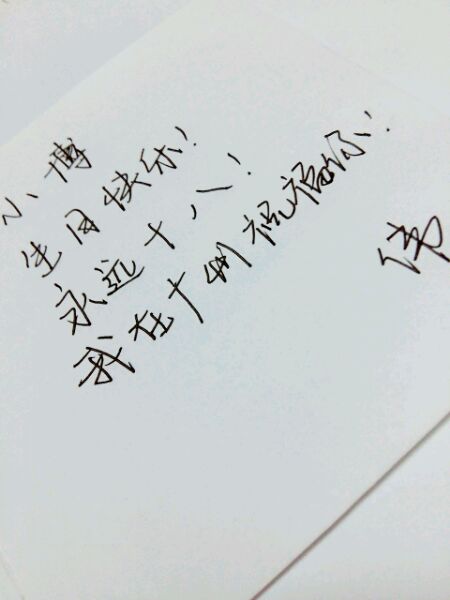 小博
生日快乐!
永远十八!
我在广州祝福你!
伟